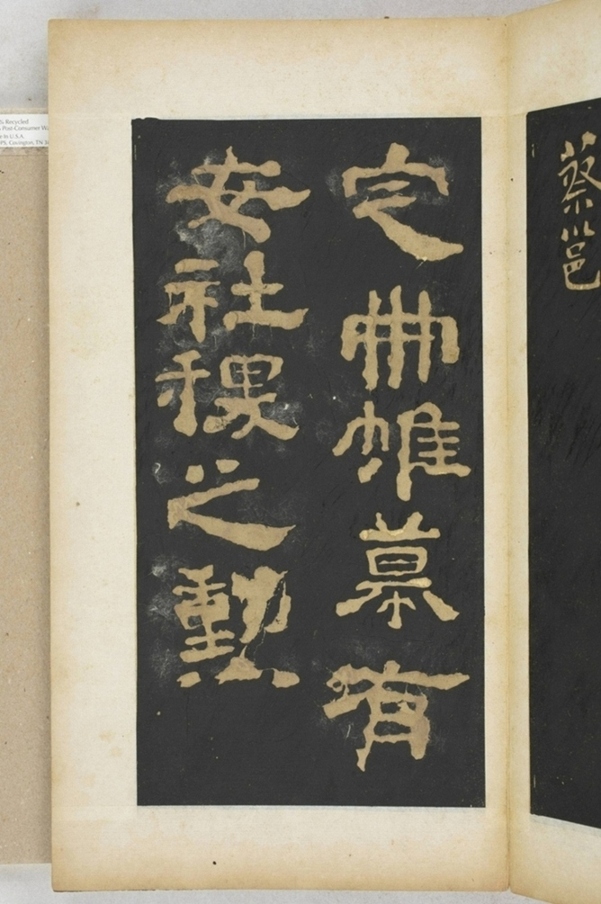 蔡邕
定冊帷幕有
安社稷之勳
Recycled
Post-Consumer
in U.S.A.
Covington, TN